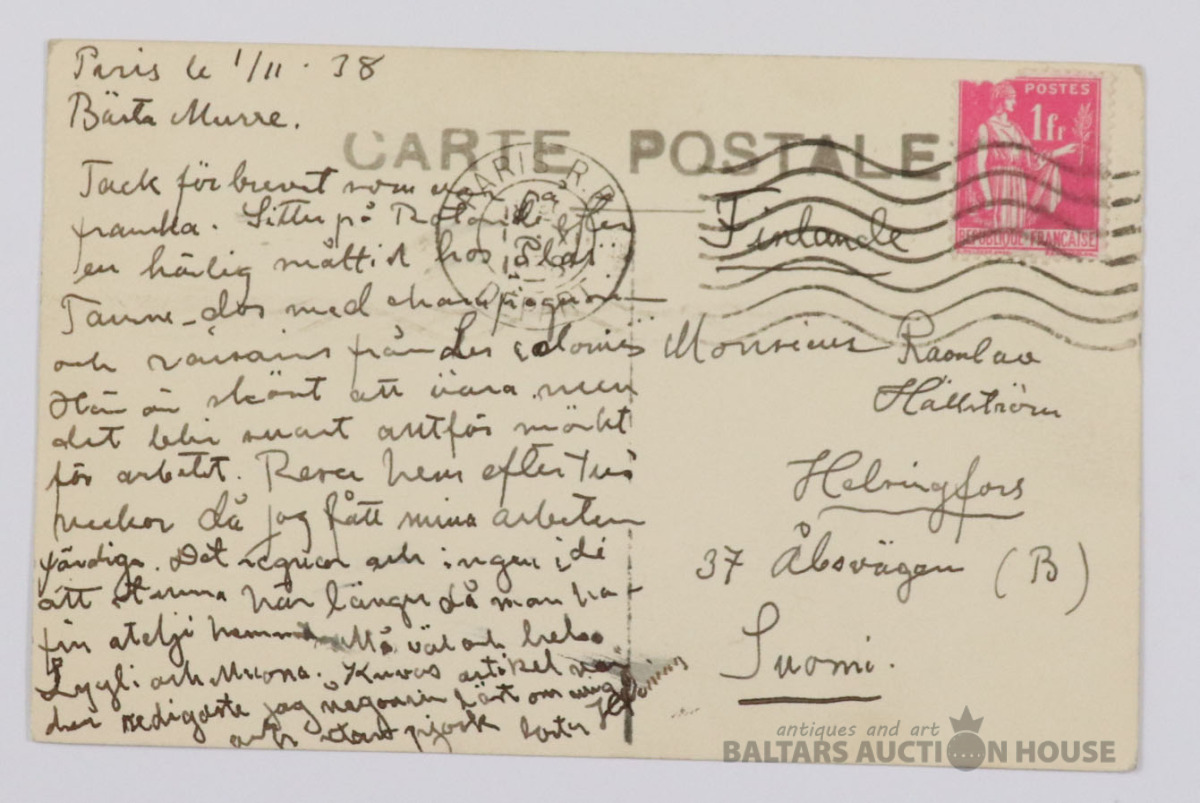 Paris le 1/11 · 38
Bästa Murre.
CARTE POSTALE
Tack för brevet som
franska. Sitter på
en härlig måltid hos
med champignon
och raisins från Les colonies
Här är skönt att vara men
det blir snart alltför mörkt
för arbetet. Reser hem efter två
veckor då jag fått mina arbeten
färdiga. Det regnar och ingen idé
att stanna här längre då man har
fin ateljé hemma. Må väl och hälsa
Lygli och Muona. Kuvas artikel var
den redigaste jag någonsin läst om mig
PARIS R.P.
DEPART
POSTES
1fr
REPUBLIQUE FRANÇAISE
Finlande
Monsieur Raoul av
Hällström
Helsingfors
37 Åbovägen (B)
Suomi.
antiques and art
BALTARS AUCTION HOUSE